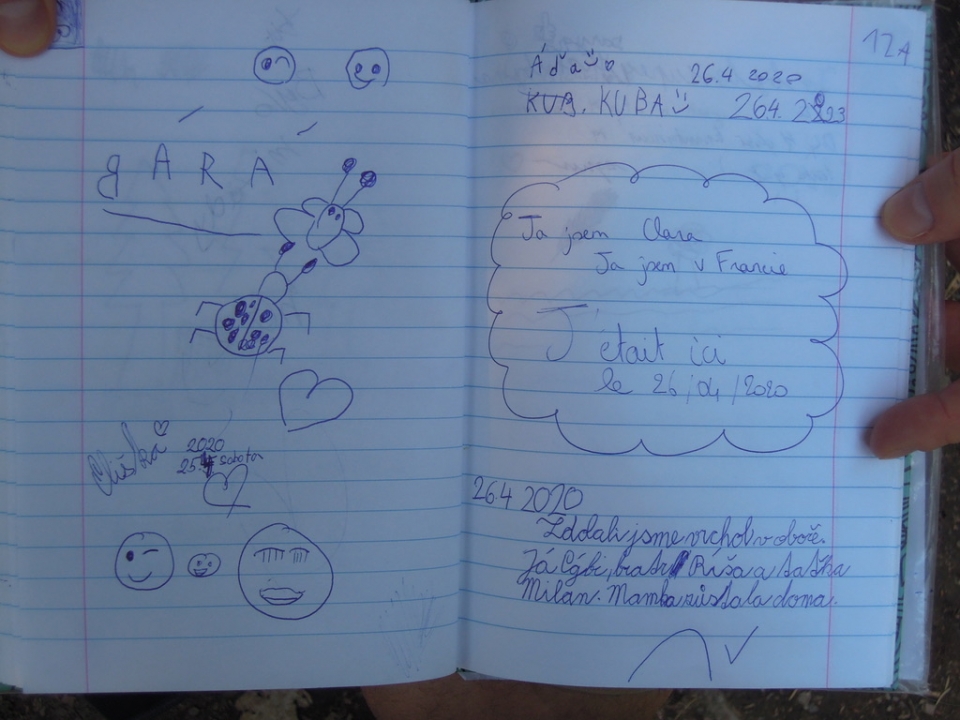 BÁRÁ
2020
25.4 sobota
12A
Áďa
26.4 2020
KUB. KUBA
26.4.
Ja jsem Clara
Ja jsem v Francie
J'était ici
le 26/04/2020
26.4 2020
Zdolali jsme vrchol v oboře.
Já Gábi, bratr Ríša a taťka
Milan. Mamka zůstala doma.